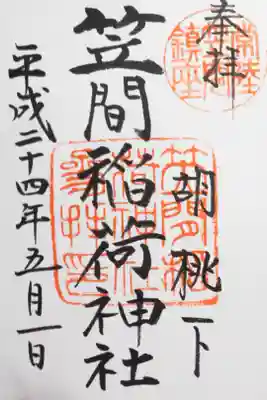 奉拝
胡桃下
笠間稲荷神社
平成二十四年五月一日